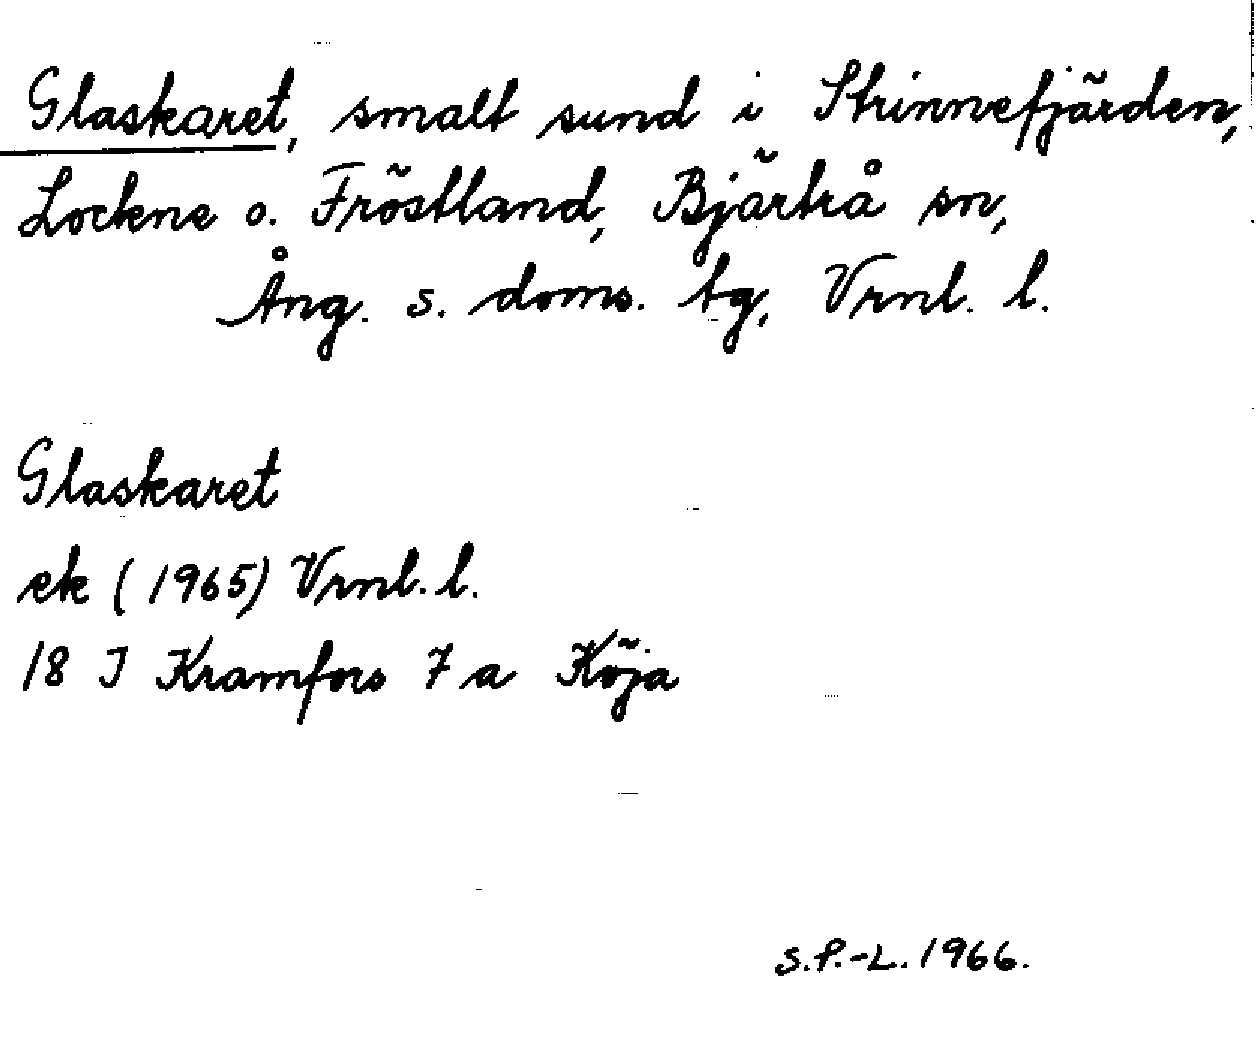 Glaskaret, smalt sund i Strinnefjärden,
Lockne o. Fröstland, Bjärtrå sn,
Ång. s. doms. tg, Vrnl. l.
Glaskaret
ek (1965) Vrnl. l.
18 I Kramfors 7 a Köja
S.P.-L. 1966.